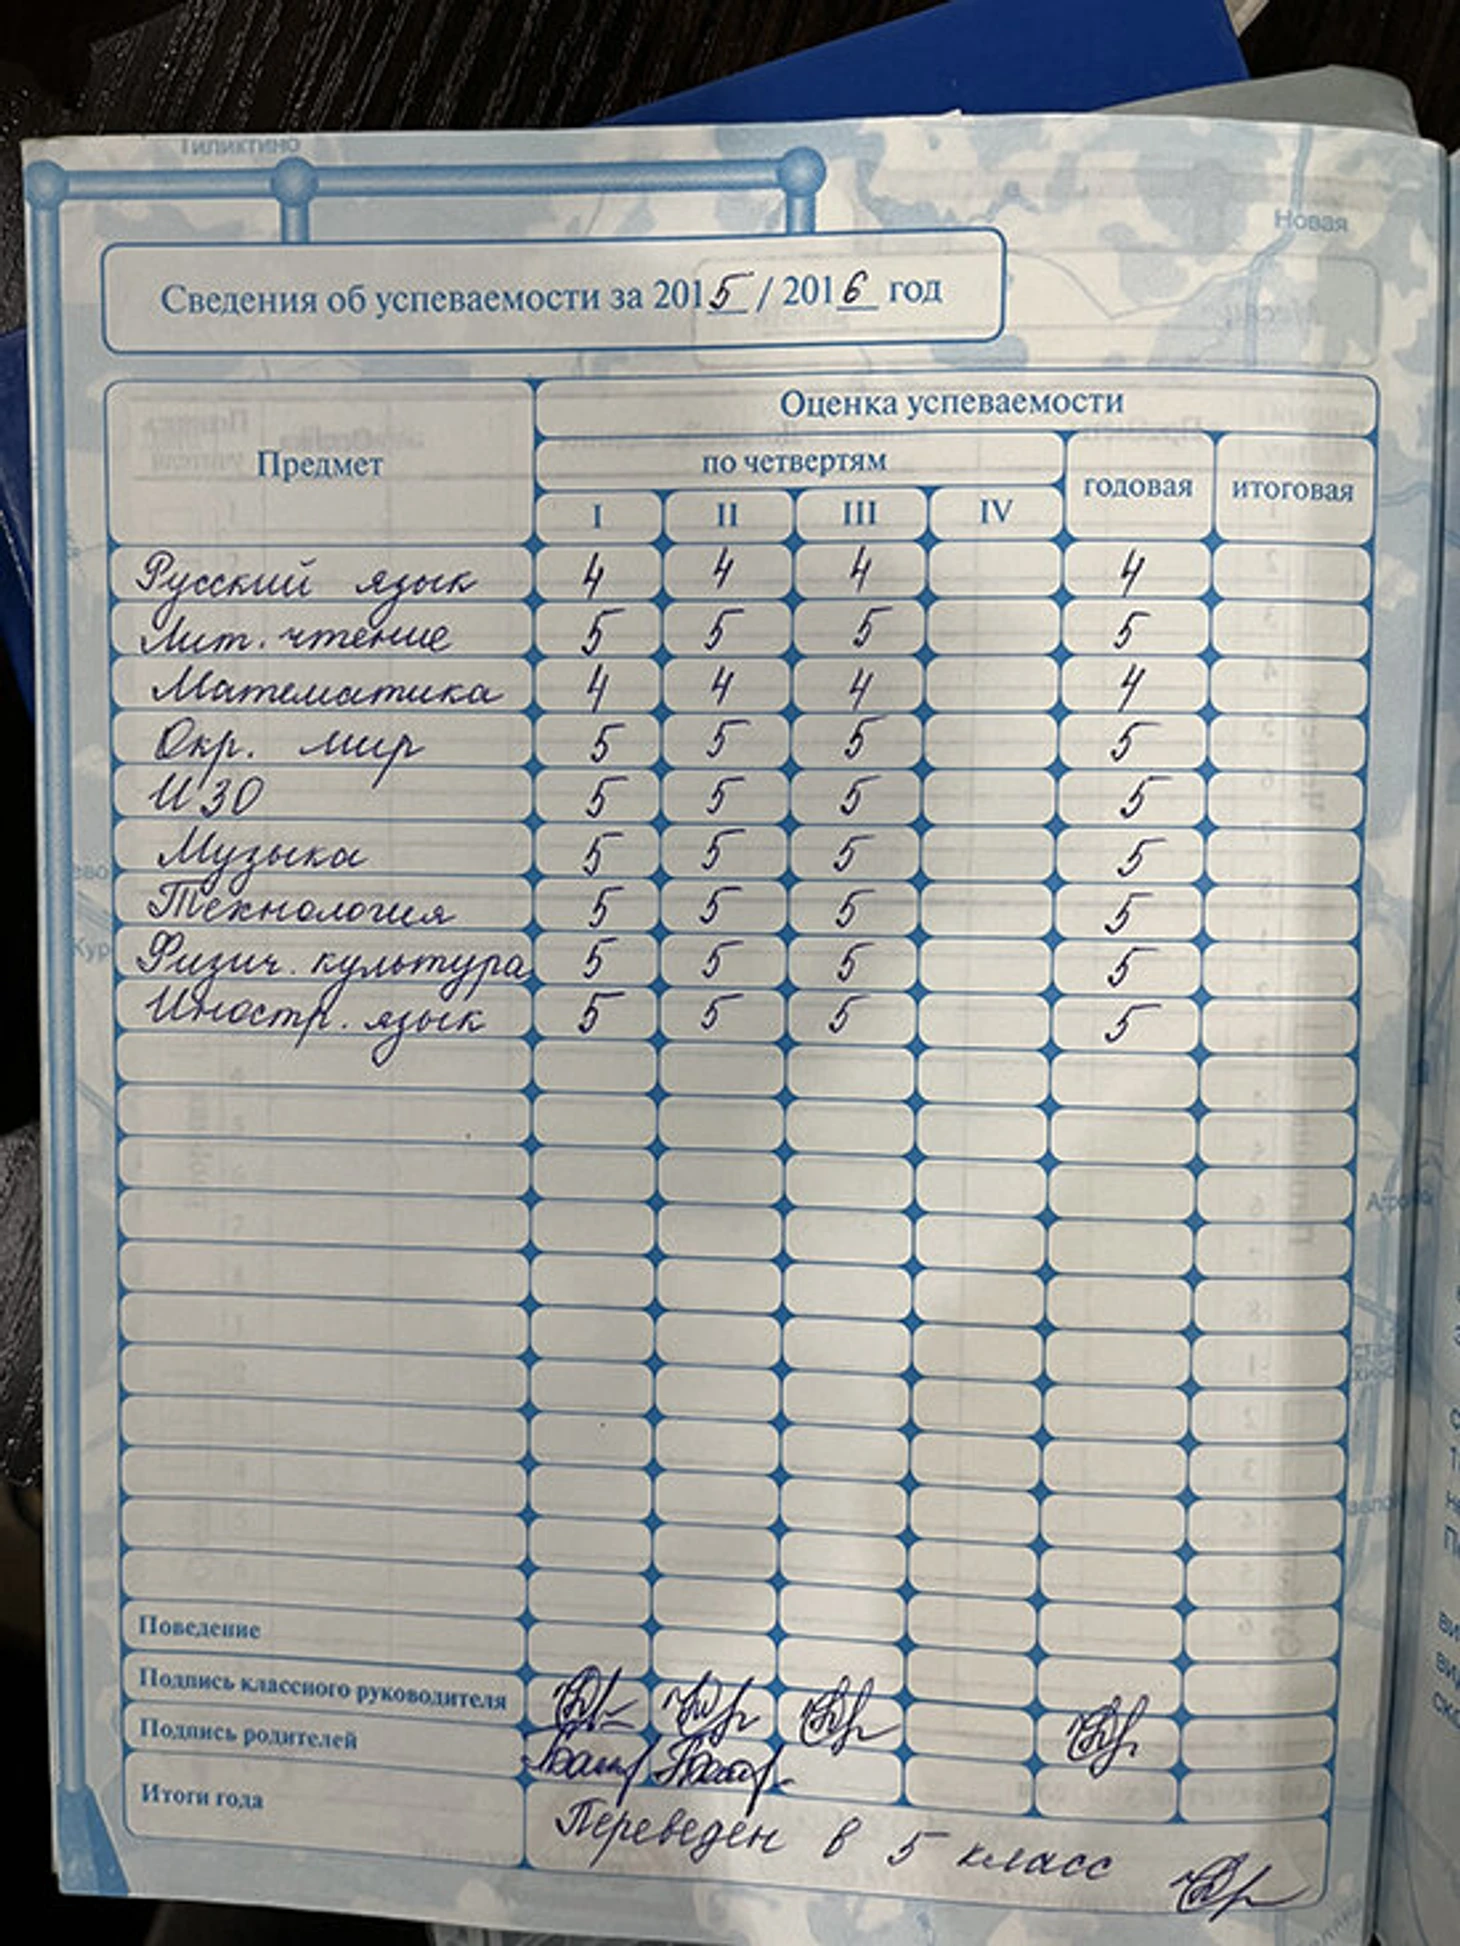 Гиликтино
Новая
Сведения об успеваемости за 2015 / 2016 год
Предмет
Оценка успеваемости
по четвертям
годовая
итоговая
I II III IV
Русский язык 4 4 4 4
Лит. чтение 5 5 5 5
Математика 4 4 4 4
Окр. мир 5 5 5 5
ИЗО 5 5 5 5
Музыка 5 5 5 5
Технология 5 5 5 5
Физич. культура 5 5 5 5
Иностр. язык 5 5 5 5
Поведение
Подпись классного руководителя
Подпись родителей
Итоги года
Переведен в 5 класс